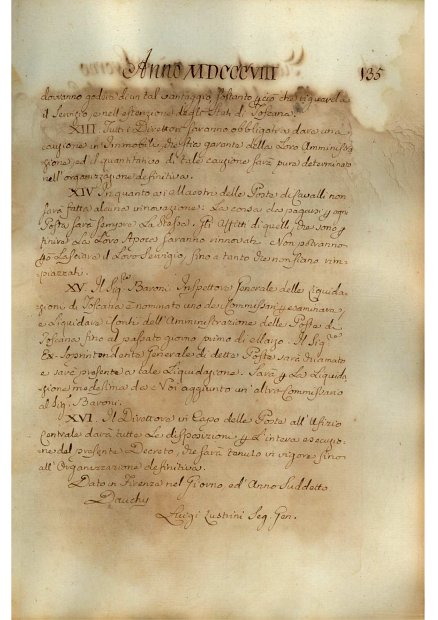 Anno MDCCCVIII 135
dovranno godere di un tal vantaggio soltanto in ciò che riguarda
il Servizio e nell'estensione degli Stati di Toscana.
XIII. Tutti i Direttori saranno obbligati a dare una
cauzione in Immobili, che sia garante della Loro Amministra
zione, ed il quantitativo di tale cauzione sarà pure determinato
nell'organizzazione definitiva.
XIV. In quanto ai Maestri delle Poste di Cavalli non
sarà fatta alcuna innovazione: La corsa da pagarsi ogni
Posta sarà sempre La stessa. Gli Affitti di quelli, che
La Loro Apoca saranno rinnovati. Non potranno
Lasciare il Loro Servigio, fino a tanto che non siano rim
piazzati.
XV. Il Sig.r Baroni Inspettore Generale delle Liquida
zioni di Toscana è nominato uno dei Commissari p esaminare,
e liquidare i Conti dell'Amministrazione delle Poste di
Toscana fino al passato giorno primo di Marzo. Il Sig.r
Ex-Soprintendente Generale di dette Poste sarà chiamato
e sarà presente a tale Liquidazione. Sarà p La Liquida
zione medesima da Noi aggiunto un'altro Commissario
al Sig.r Baroni.
XVI. Il Direttore in Capo delle Poste all'Ufizio
Centrale darà tutte Le disposizioni p L'intera esecuzio
ne del presente Decreto, che sarà tenuto in vigore fino
all'Organizzazione definitiva.
Dato in Firenze nel Giorno ed Anno Suddetto
Dauchy
Luigi Lustrini Seg. Gen.